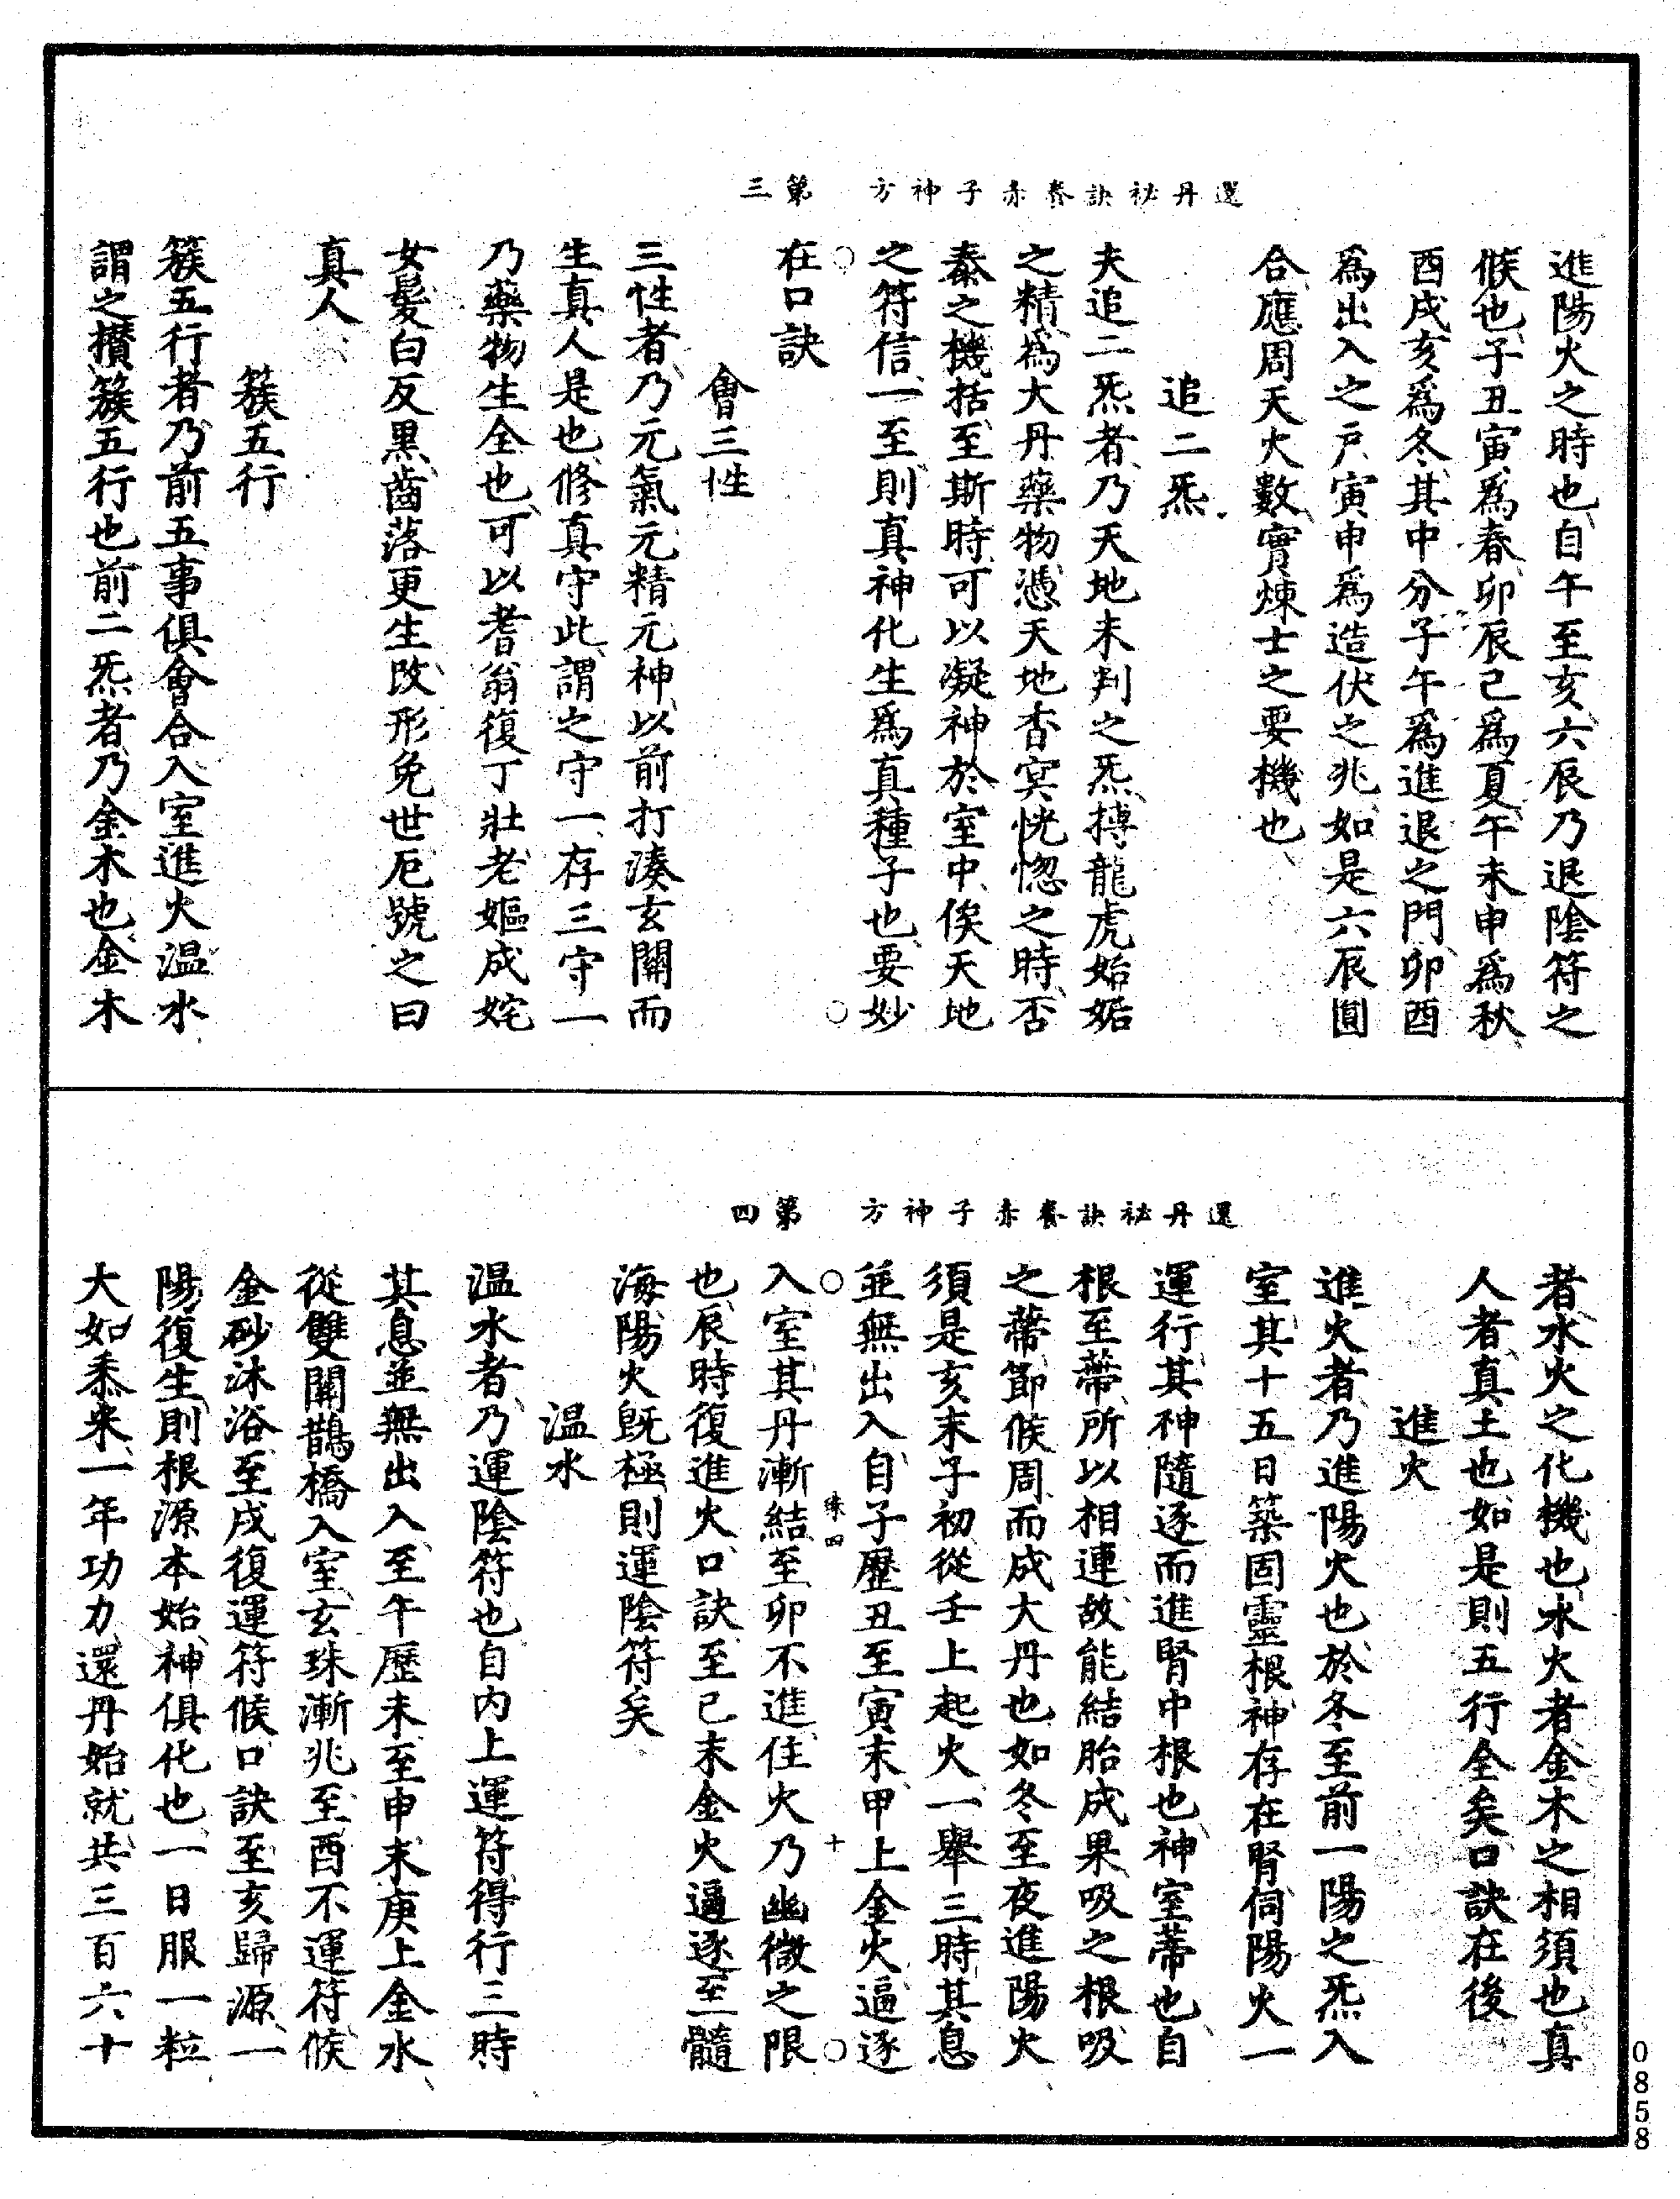 還丹祕訣養赤子神方　第三
進陽火之時也自午至亥六辰乃退陰符之
候也子丑寅爲春卯辰巳爲夏午未申爲秋
酉戌亥爲冬其中分子午爲進退之門卯酉
爲出入之戶寅申爲造伏之兆如是六辰圓
合應周天火數實煉士之要機也
追二炁
夫追二炁者乃天地未判之炁搏龍虎始媾
之精爲大丹藥物憑天地杳冥恍惚之時否
泰之機括至斯時可以凝神於室中俟天地
之符信一至則真神化生爲真種子也要妙
在口訣
會三性
三性者乃元氣元精元神以前打湊玄關而
生真人是也修真守此謂之守一存三守一
乃藥物生全也可以耆翁復丁壯老嫗成姹
女髮白反黑齒落更生改形免世厄號之曰
真人
簇五行
簇五行者乃前五事俱會合入室進火温水
謂之攢簇五行也前二炁者乃金木也金木
還丹祕訣養赤子神方　第四
者水火之化機也水火者金木之相須也真
人者真土也如是則五行全矣口訣在後
進火
進火者乃進陽火也於冬至前一陽之炁入
室其十五日築固靈根神存在腎伺陽火一
運行其神隨逐而進腎中根也神室蒂也自
根至蒂所以相連故能結胎成果吸之根吸
之蒂節候周而成大丹也如冬至夜進陽火
須是亥末子初從壬上起火一舉三時其息
並無出入自子歷丑至寅末甲上金火逼逐
入室其丹漸結至卯不進住火乃幽微之限
也辰時復進火口訣至巳末金火逼逐至髓
海陽火旣極則運陰符矣
温水
温水者乃運陰符也自内上運符得行三時
其息並無出入至午歷未至申末庚上金水
從雙關鵲橋入室玄珠漸兆至酉不運符候
金砂沐浴至戌復運符候口訣至亥歸源一
陽復生則根源本始神俱化也一日服一粒
大如黍米一年功力還丹始就共三百六十
0858